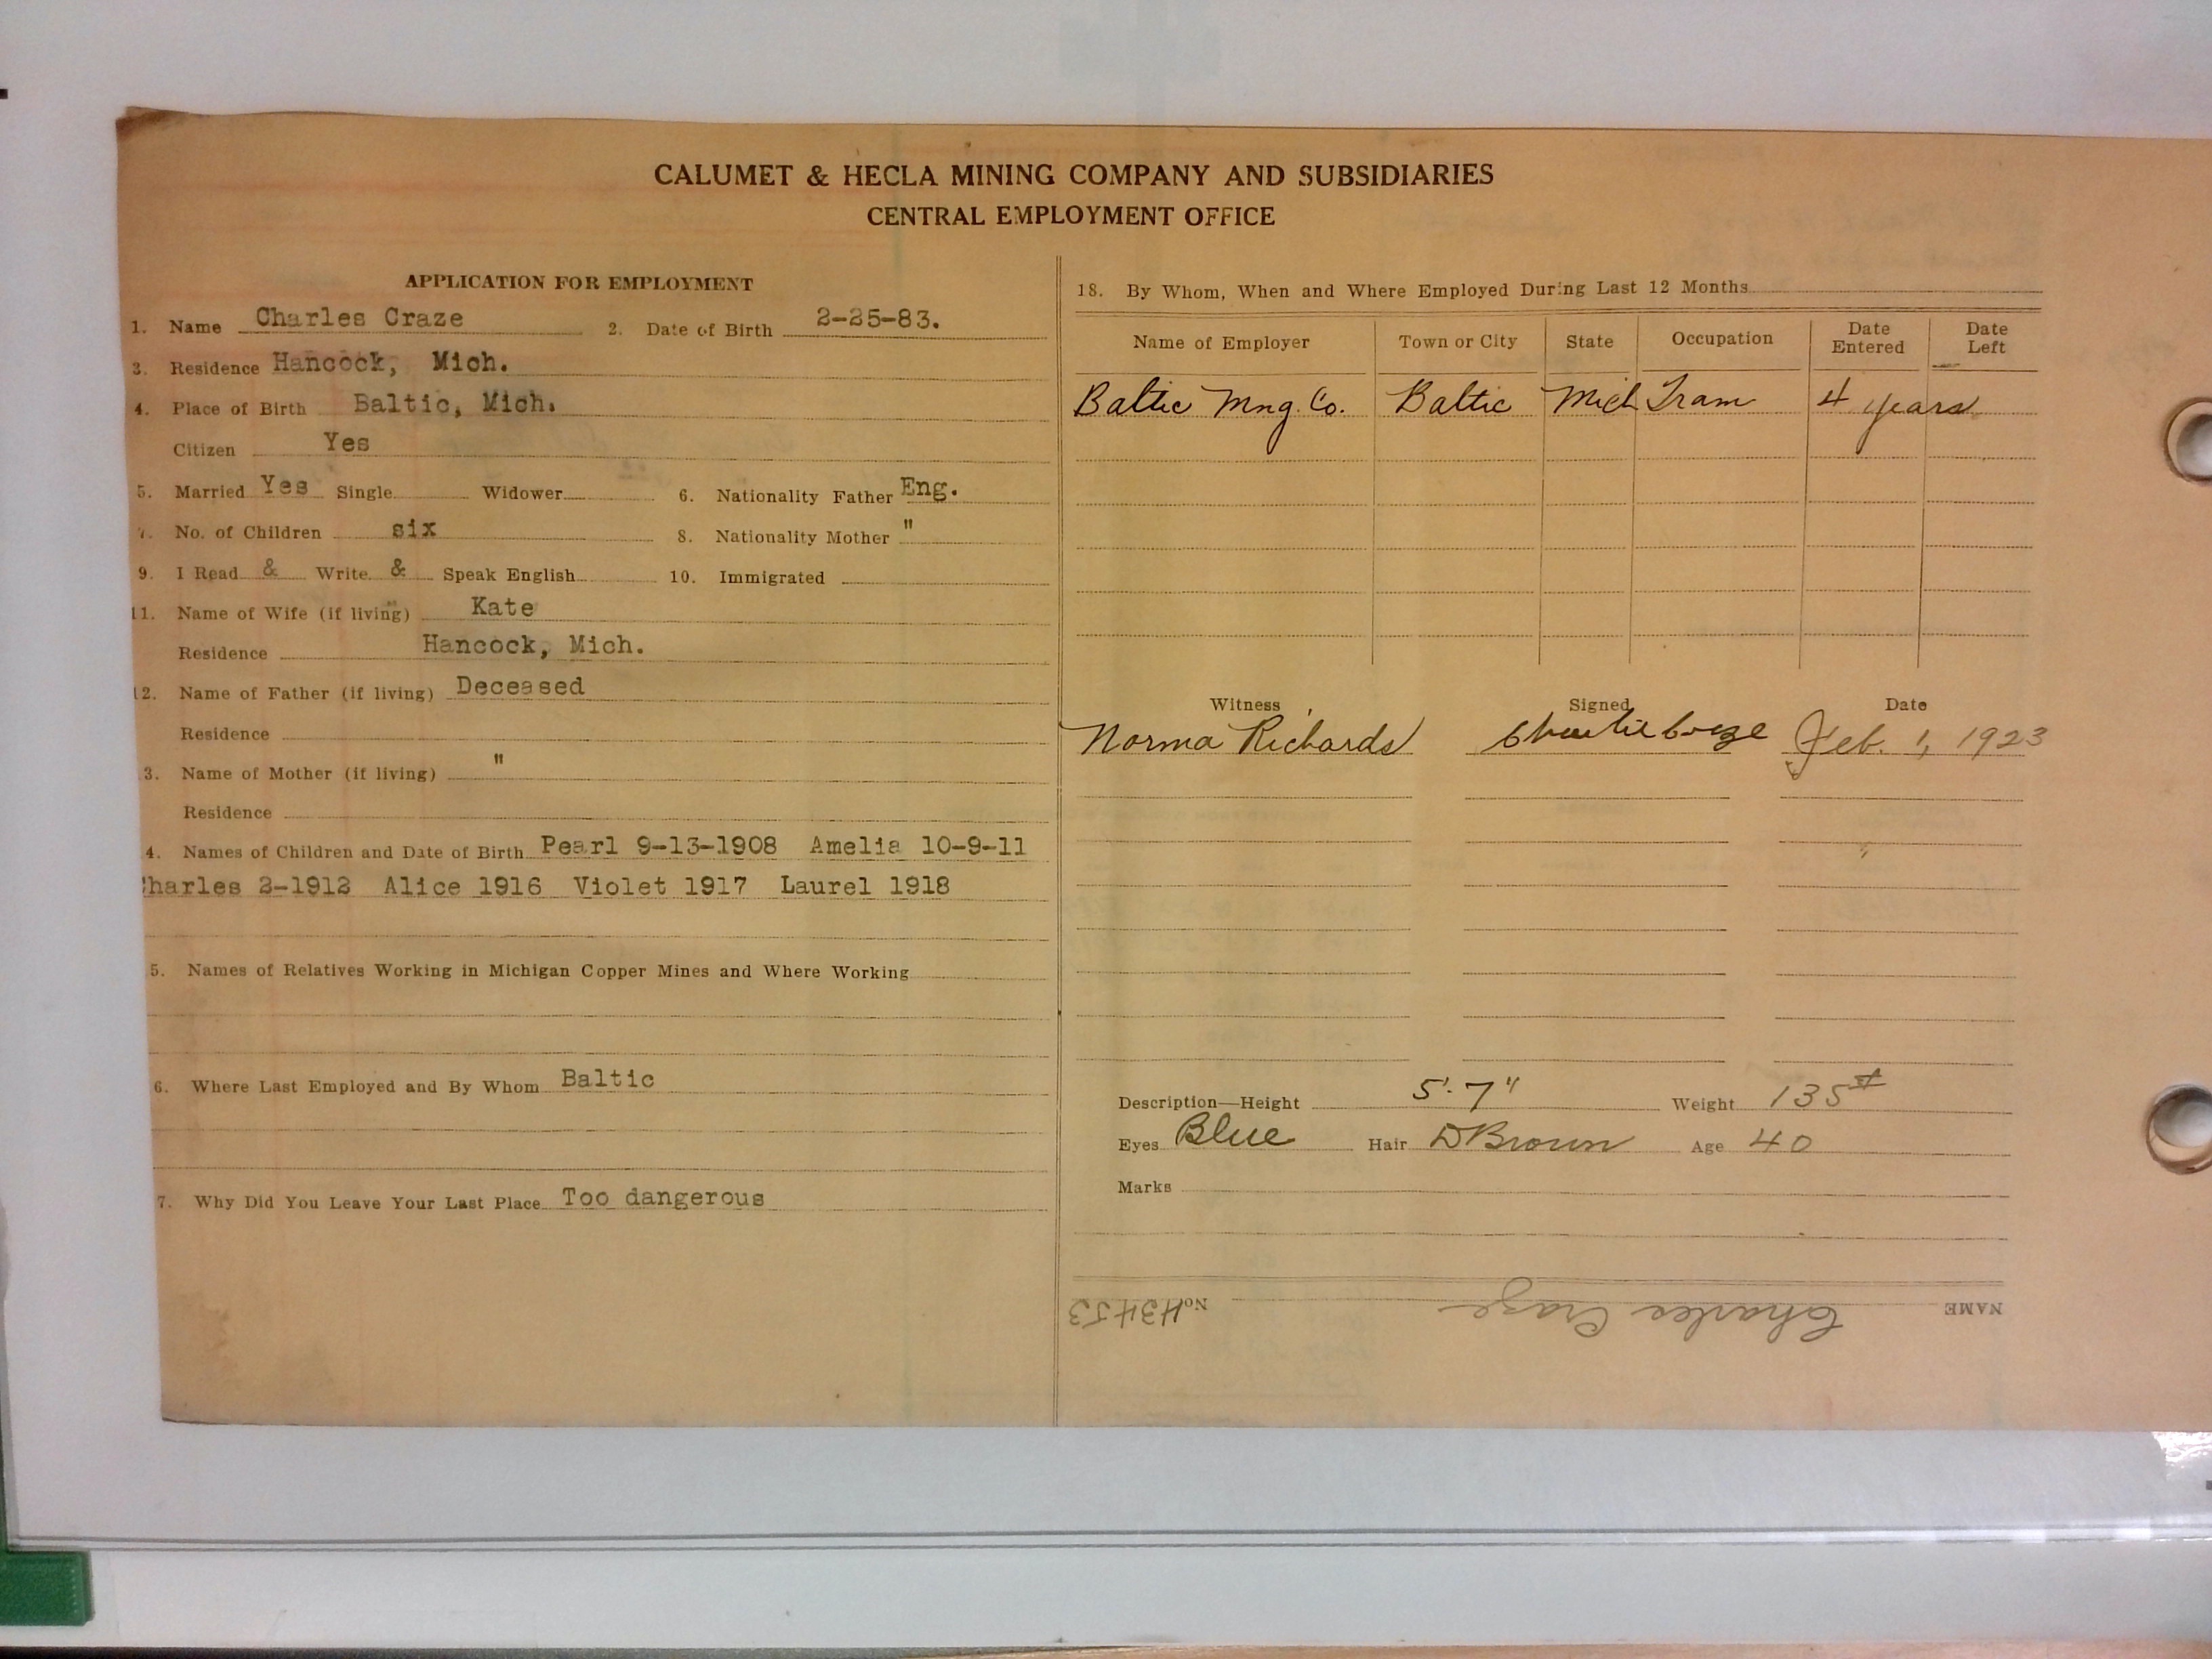 CALUMET & HECLA MINING COMPANY AND SUBSIDIARIES
CENTRAL EMPLOYMENT OFFICE
APPLICATION FOR EMPLOYMENT
1. Name Charles Craze 2. Date of Birth 2-25-83.
3. Residence Hancock, Mich.
4. Place of Birth Baltic, Mich.
Citizen Yes
5. Married Yes Single Widower 6. Nationality Father Eng.
7. No. of Children six 8. Nationality Mother "
9. I Read & Write & Speak English 10. Immigrated
11. Name of Wife (if living) Kate
Residence Hancock, Mich.
12. Name of Father (if living) Deceased
Residence
3. Name of Mother (if living) "
Residence
4. Names of Children and Date of Birth Pearl 9-13-1908 Amelia 10-9-11
Charles 2-1912 Alice 1916 Violet 1917 Laurel 1918
5. Names of Relatives Working in Michigan Copper Mines and Where Working
6. Where Last Employed and By Whom Baltic
7. Why Did You Leave Your Last Place Too dangerous
18. By Whom, When and Where Employed During Last 12 Months
Name of Employer Town or City State Occupation Date Entered Date Left
Baltic Mng. Co. Baltic Mich Tram 4 years
Witness Signed Date
Norma Richards Charlie Craze Feb. 1, 1923
Description—Height 5'.7" Weight 135#
Eyes Blue Hair D Brown Age 40
Marks
NAME Charles Craze No. 43453